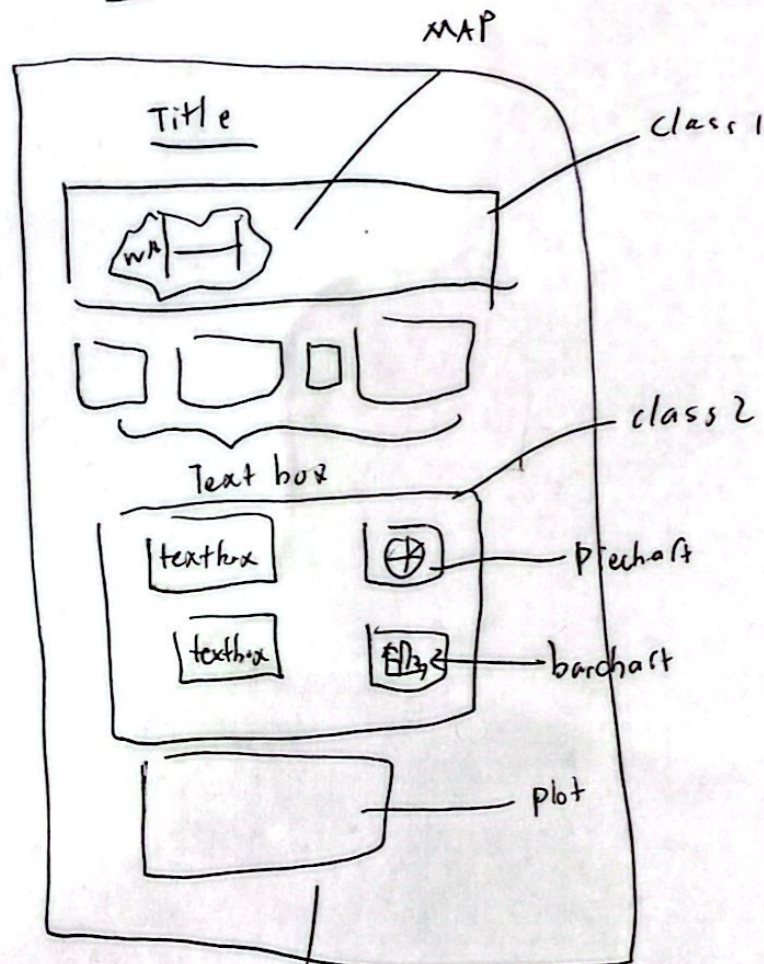 MAP
Title
class 1
WA
class 2
Text box
textbox
piechart
textbox
barchart
plot